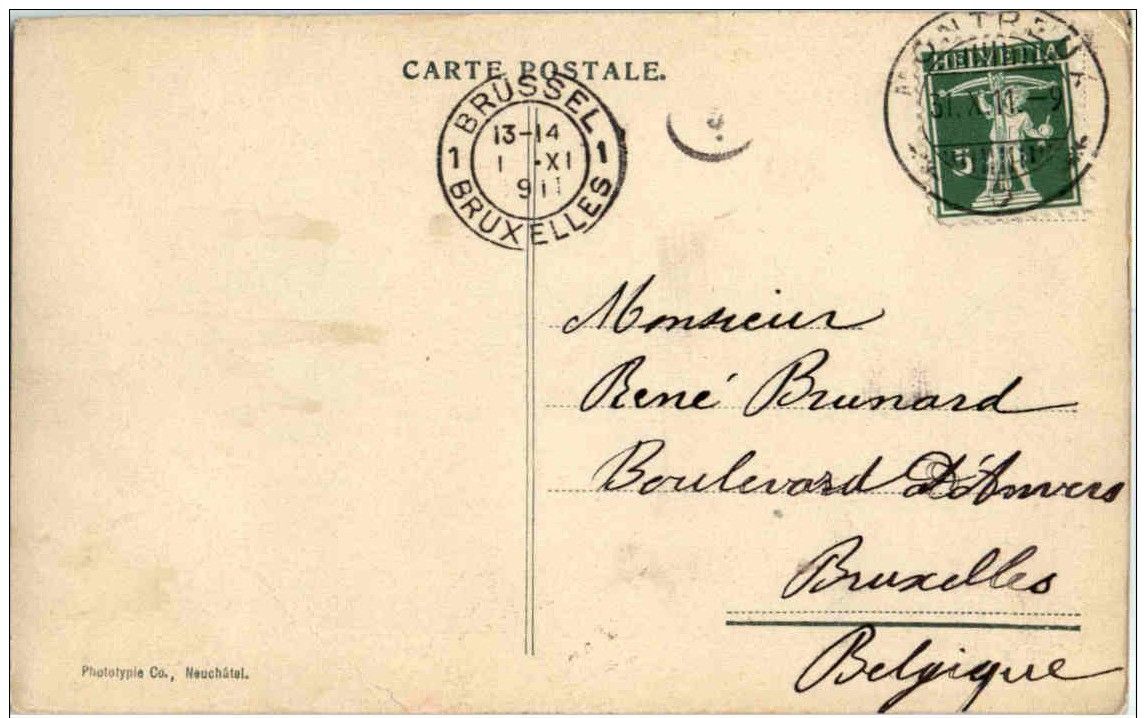 CARTE POSTALE.
BRÜSSEL
1 13-14 1
1 -XI
1911
BRUXELLES
MONTREUX
HELVETIA
31.X.11.-9
5
Monsieur
René Brunard
Boulevard D'Anvers
Bruxelles
Belgique
Phototypie Co., Neuchâtel.